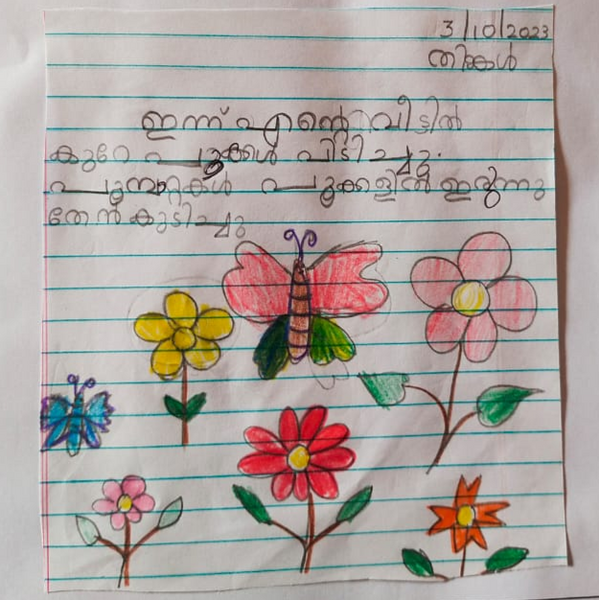 3/10/2023
തിങ്കൾ
ഇന്ന് എന്റെ വീട്ടിൽ
കുറേ പൂക്കൾ പിടിച്ചു.
പൂമ്പാറ്റകൾ പൂക്കളിൽ ഇരുന്നു
തേൻ കുടിച്ചു